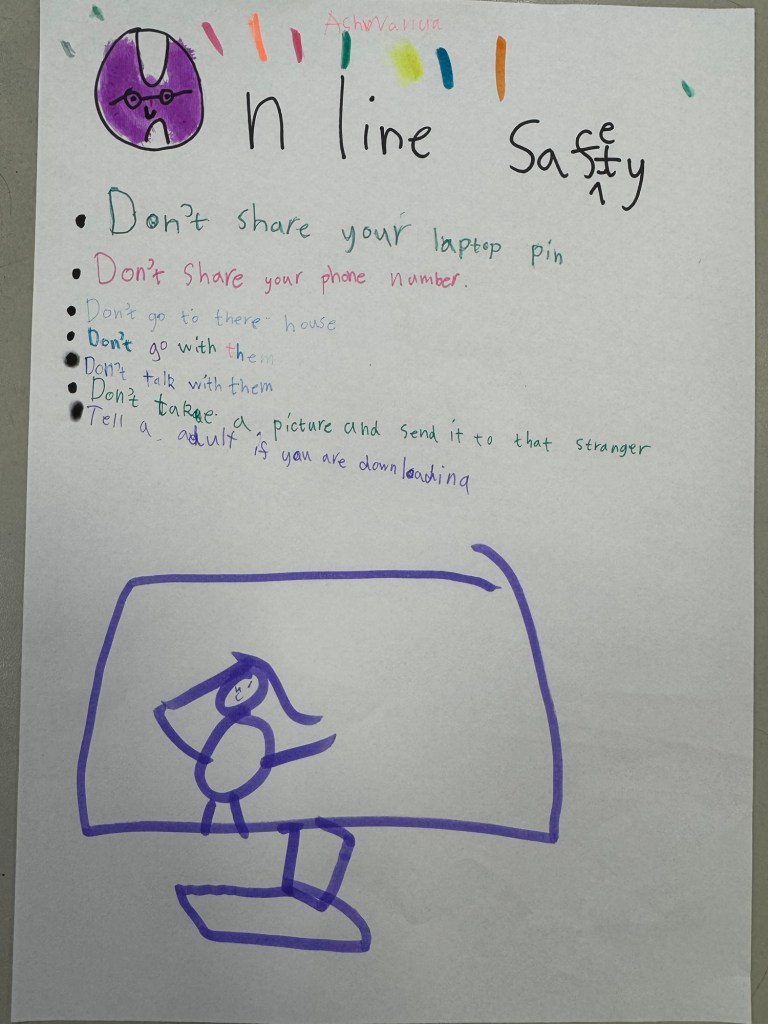 Online Safety
• Don't share your laptop pin
• Don't share your phone number.
• Don't go to there house
• Don't go with them
• Don't talk with them
• Don't take a picture and send it to that stranger
• Tell a adult if you are downloading